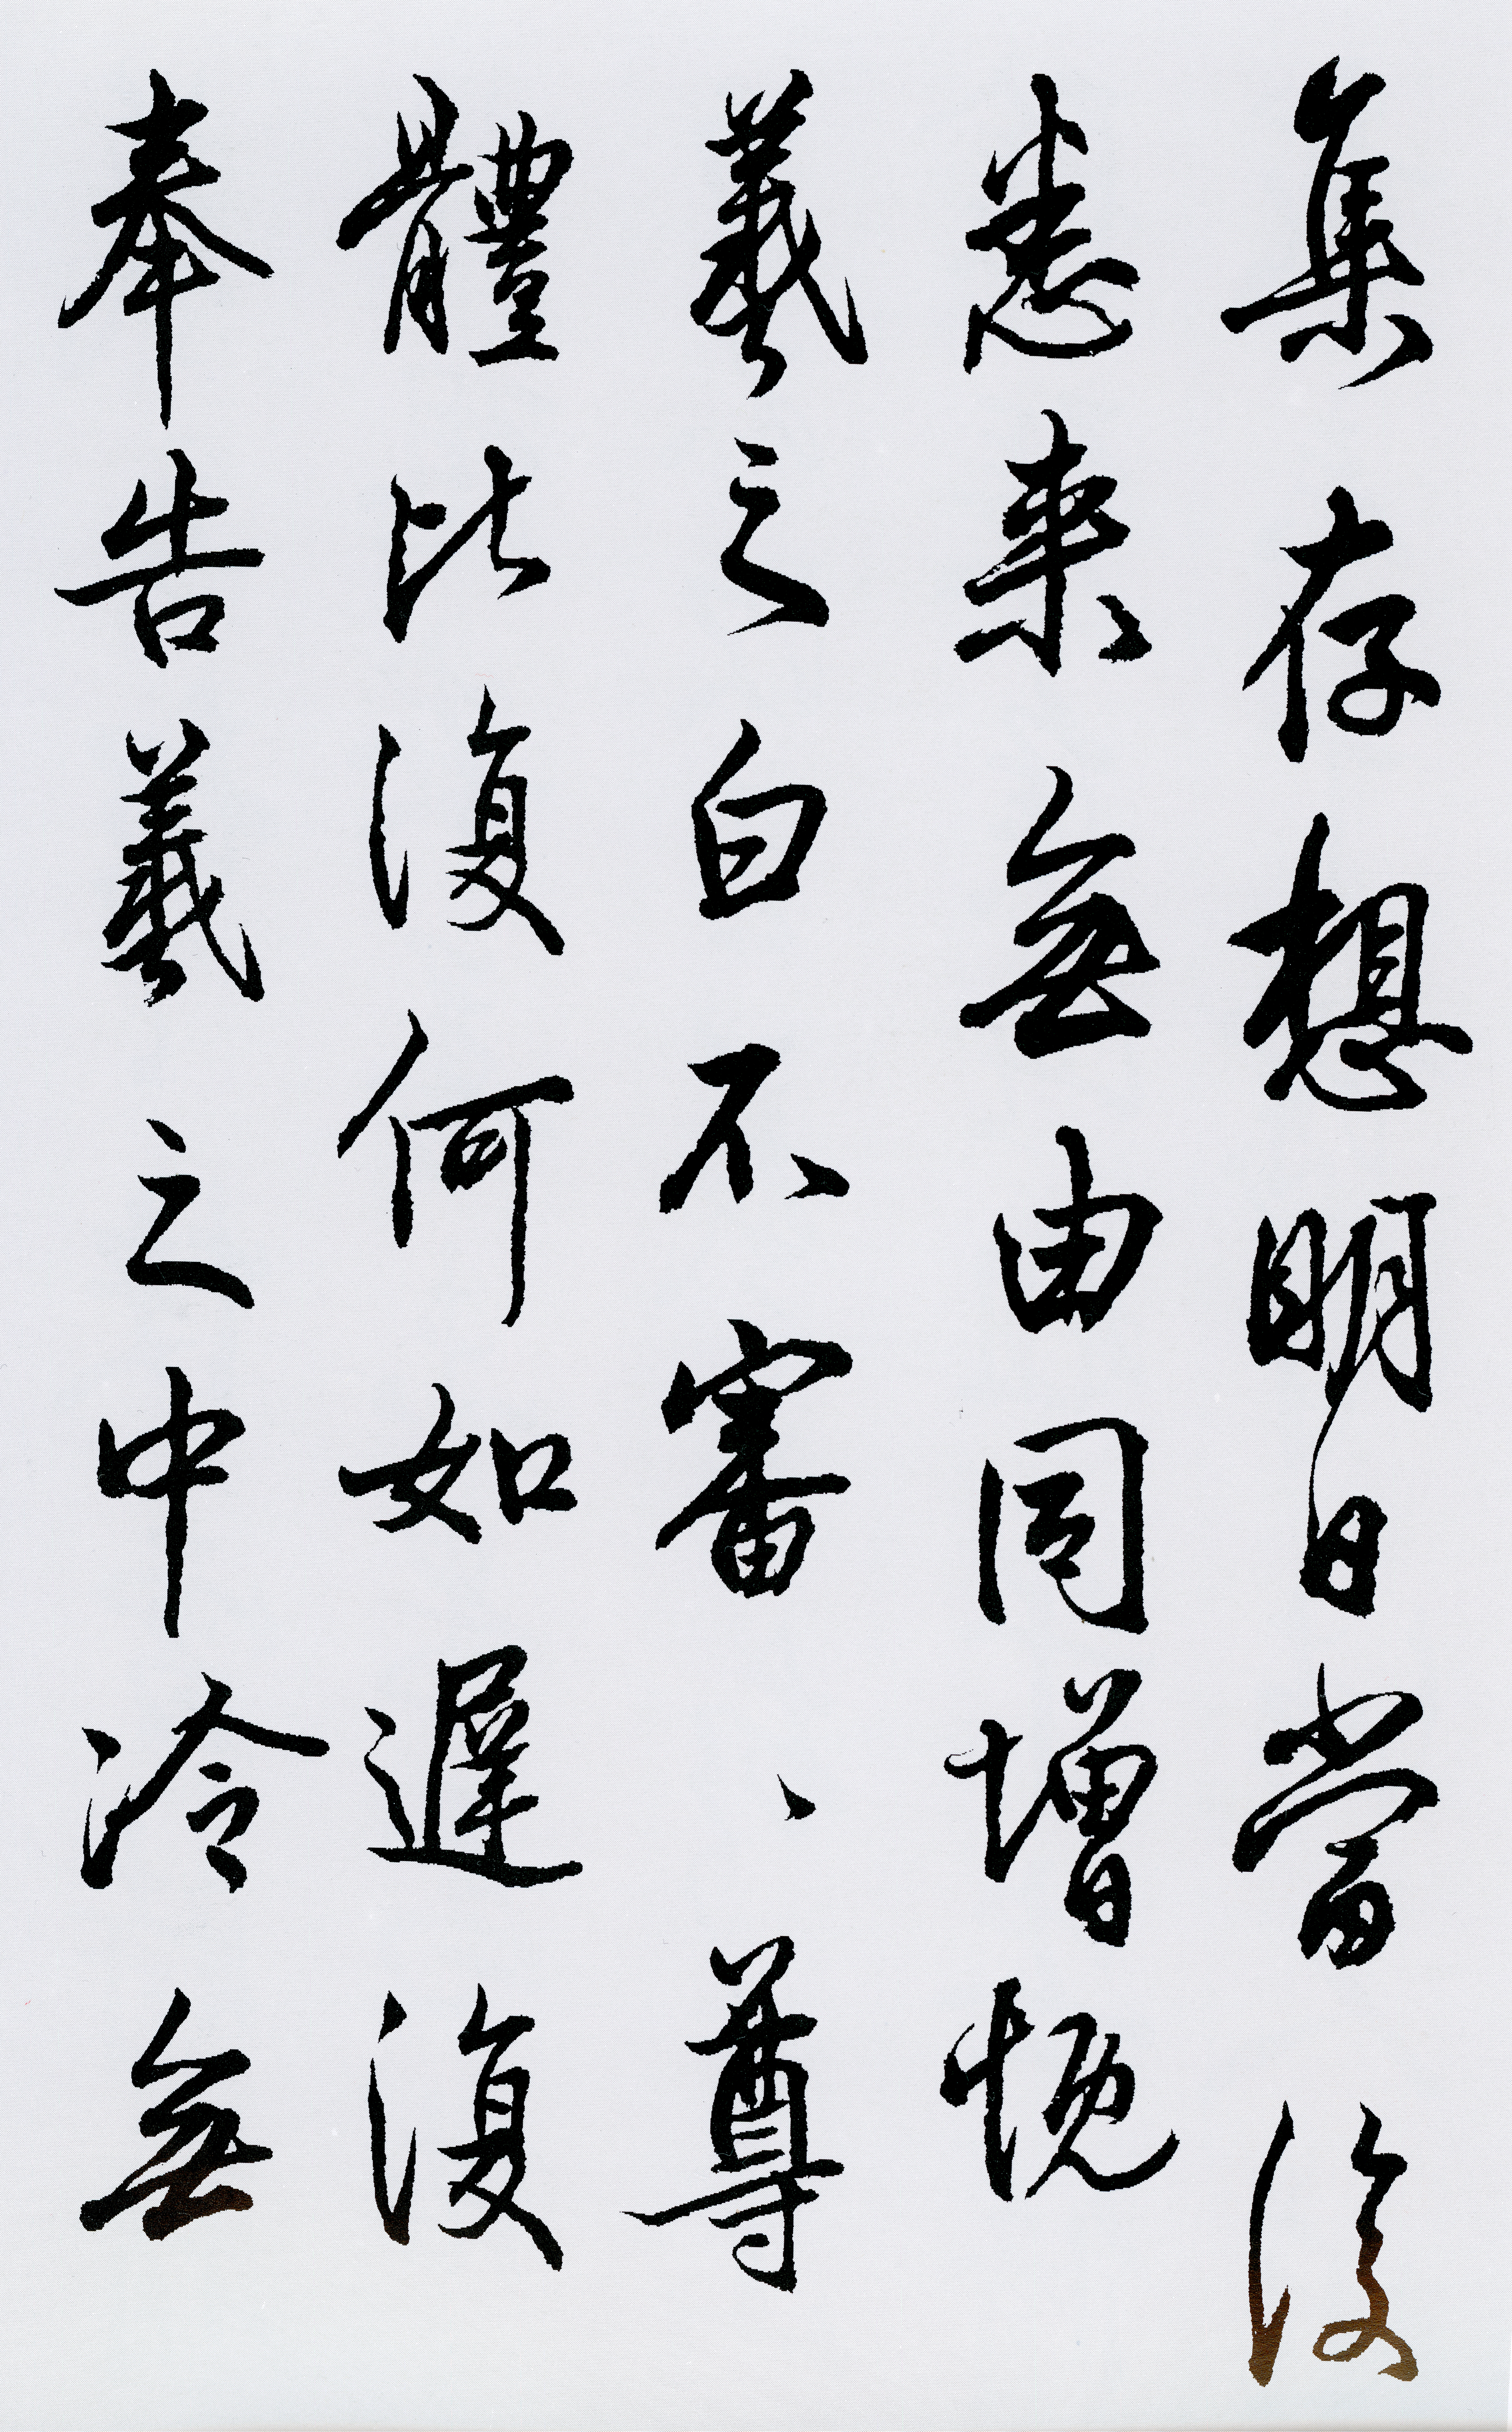 集存想明日當復
悉来無由同增慨
羲之白不審、尊
體比復何如遲復
奉告羲之中冷無